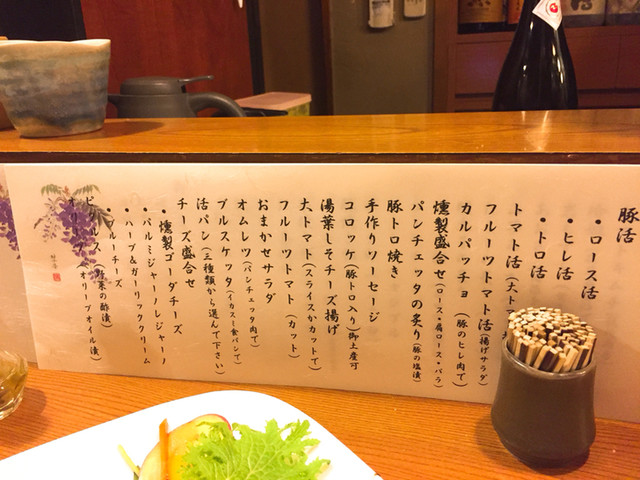 豚活
・ロース活
・ヒレ活
・トロ活
トマト活(大ト
フルーツトマト活(揚げサラダ
カルパッチョ(豚のヒレ肉で)
燻製盛合せ(ロース・肩ロース・バラ)
パンチェッタの炙り(豚の塩漬
豚トロ焼き
手作りソーセージ
コロッケ(豚トロ入り)御土産可
湯葉しそチーズ揚げ
大トマト(スライスかカットで)
フルーツトマト(カット)
おまかせサラダ
オムレツ(パンチェッタ肉で)
ブルスケッタ(イカスミ食パンで)
活パン(三種類から選んで下さい)
チーズ盛合せ
・燻製ゴーダチーズ
・パルミジャーノレジャーノ
・ハーブ&ガーリッククリーム
・ブルーチーズ
ピクルス(野菜の酢漬)
オリーブ(オリーブオイル漬)